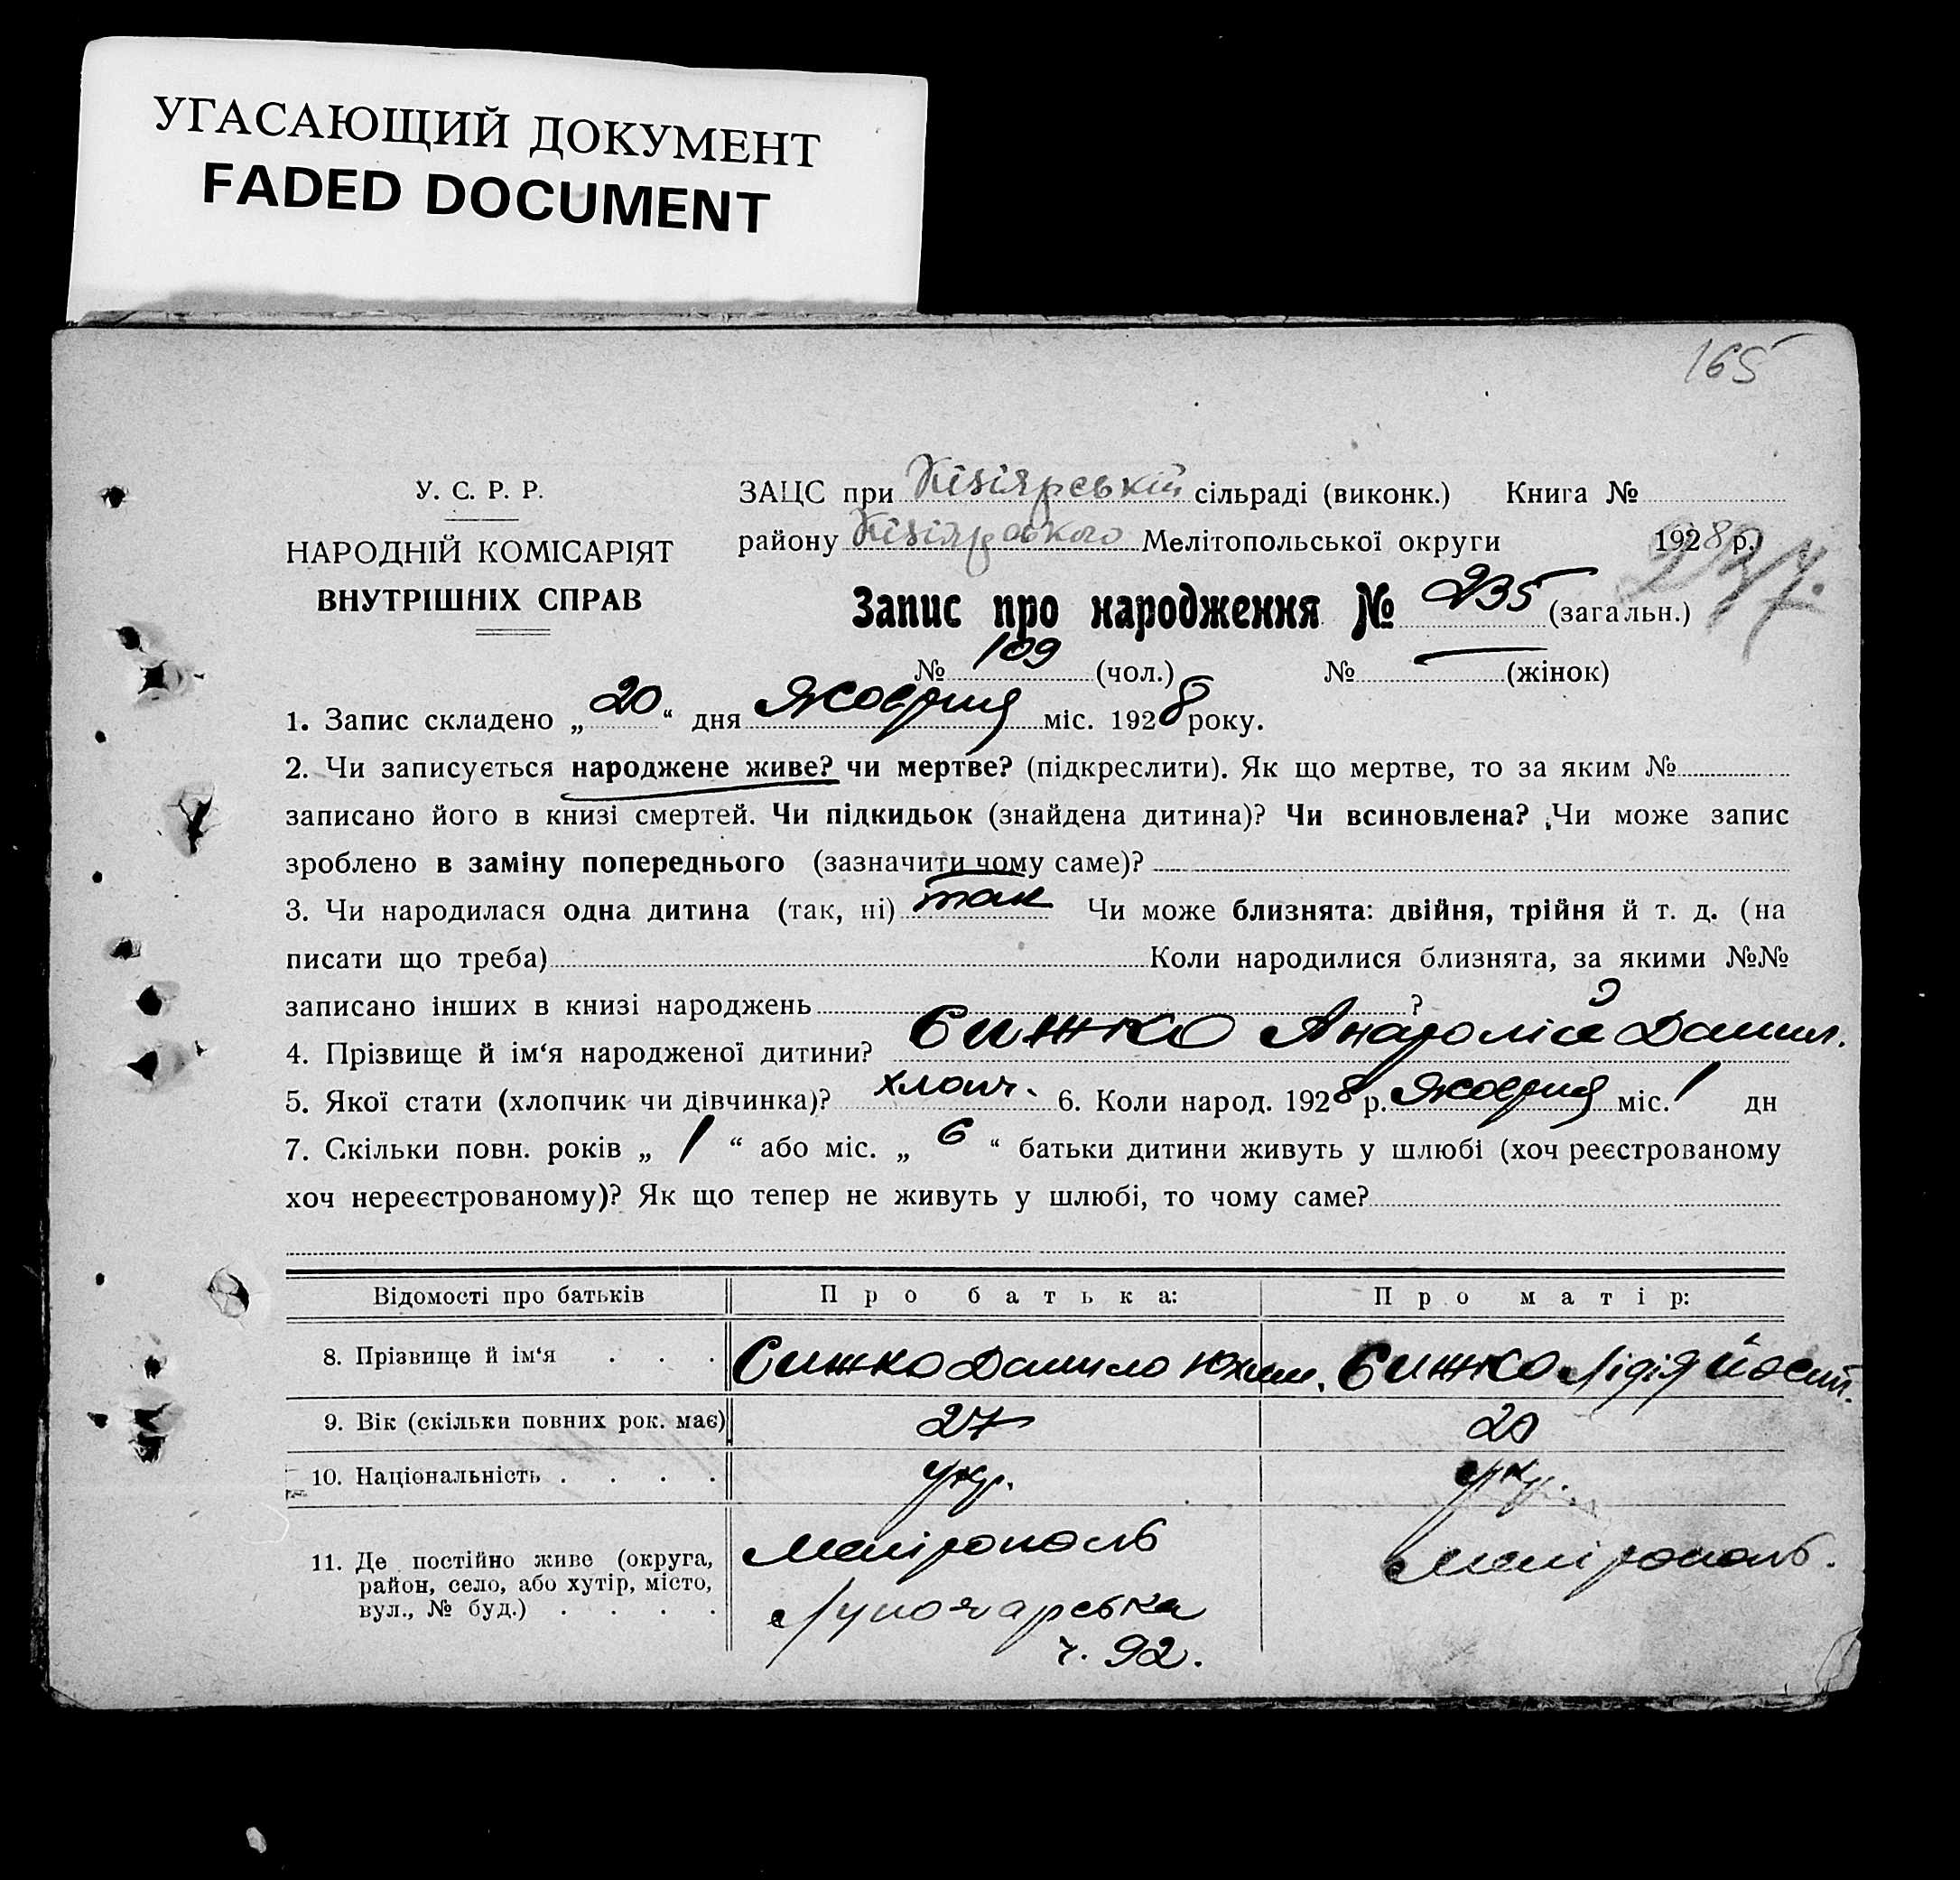 УГАСАЮЩИЙ ДОКУМЕНТ
FADED DOCUMENT
165
У. С. Р. Р.
НАРОДНІЙ КОМІСАРІЯТ
ВНУТРІШНІХ СПРАВ
ЗАЦС при Кізіярській сільраді (виконк.) Книга №
району Кізіярського Мелітопольської округи 1928 р.
237.
Запис про народження № 235 (загальн.)
№ 109 (чол.) № — (жінок)
1. Запис складено „ 20 “ дня Жовтня міс. 1928 року.
2. Чи записується народжене живе? чи мертве? (підкреслити). Як що мертве, то за яким №
записано його в книзі смертей. Чи підкидьок (знайдена дитина)? Чи всиновлена? Чи може запис
зроблено в заміну попереднього (зазначити чому саме)?
3. Чи народилася одна дитина (так, ні) так Чи може близнята: двійня, трійня й т. д. (на
писати що треба) Коли народилися близнята, за якими №№
записано інших в книзі народжень ?
4. Прізвище й ім‘я народженої дитини? Сижко Анатолій Данил.
5. Якої стати (хлопчик чи дівчинка)? хлопч. 6. Коли народ. 1928 р. Жовтня міс. 1 дн
7. Скільки повн. років „ 1 “ або міс. „ 6 “ батьки дитини живуть у шлюбі (хоч реєстрованому
хоч нереєстрованому)? Як що тепер не живуть у шлюбі, то чому саме?
Відомості про батьків Про батька: Про матір:
8. Прізвище й ім‘я . . . Сижко Данило Юхим. Сижко Лідія Йосип.
9. Вік (скільки повних рок. має) 27
10. Національність . . . . укр. укр.
11. Де постійно живе (округа,
район, село, або хутір, місто,
вул., № буд.) . . . .
Мелітополь
Луначарська
ч. 92.
Мелітополь.